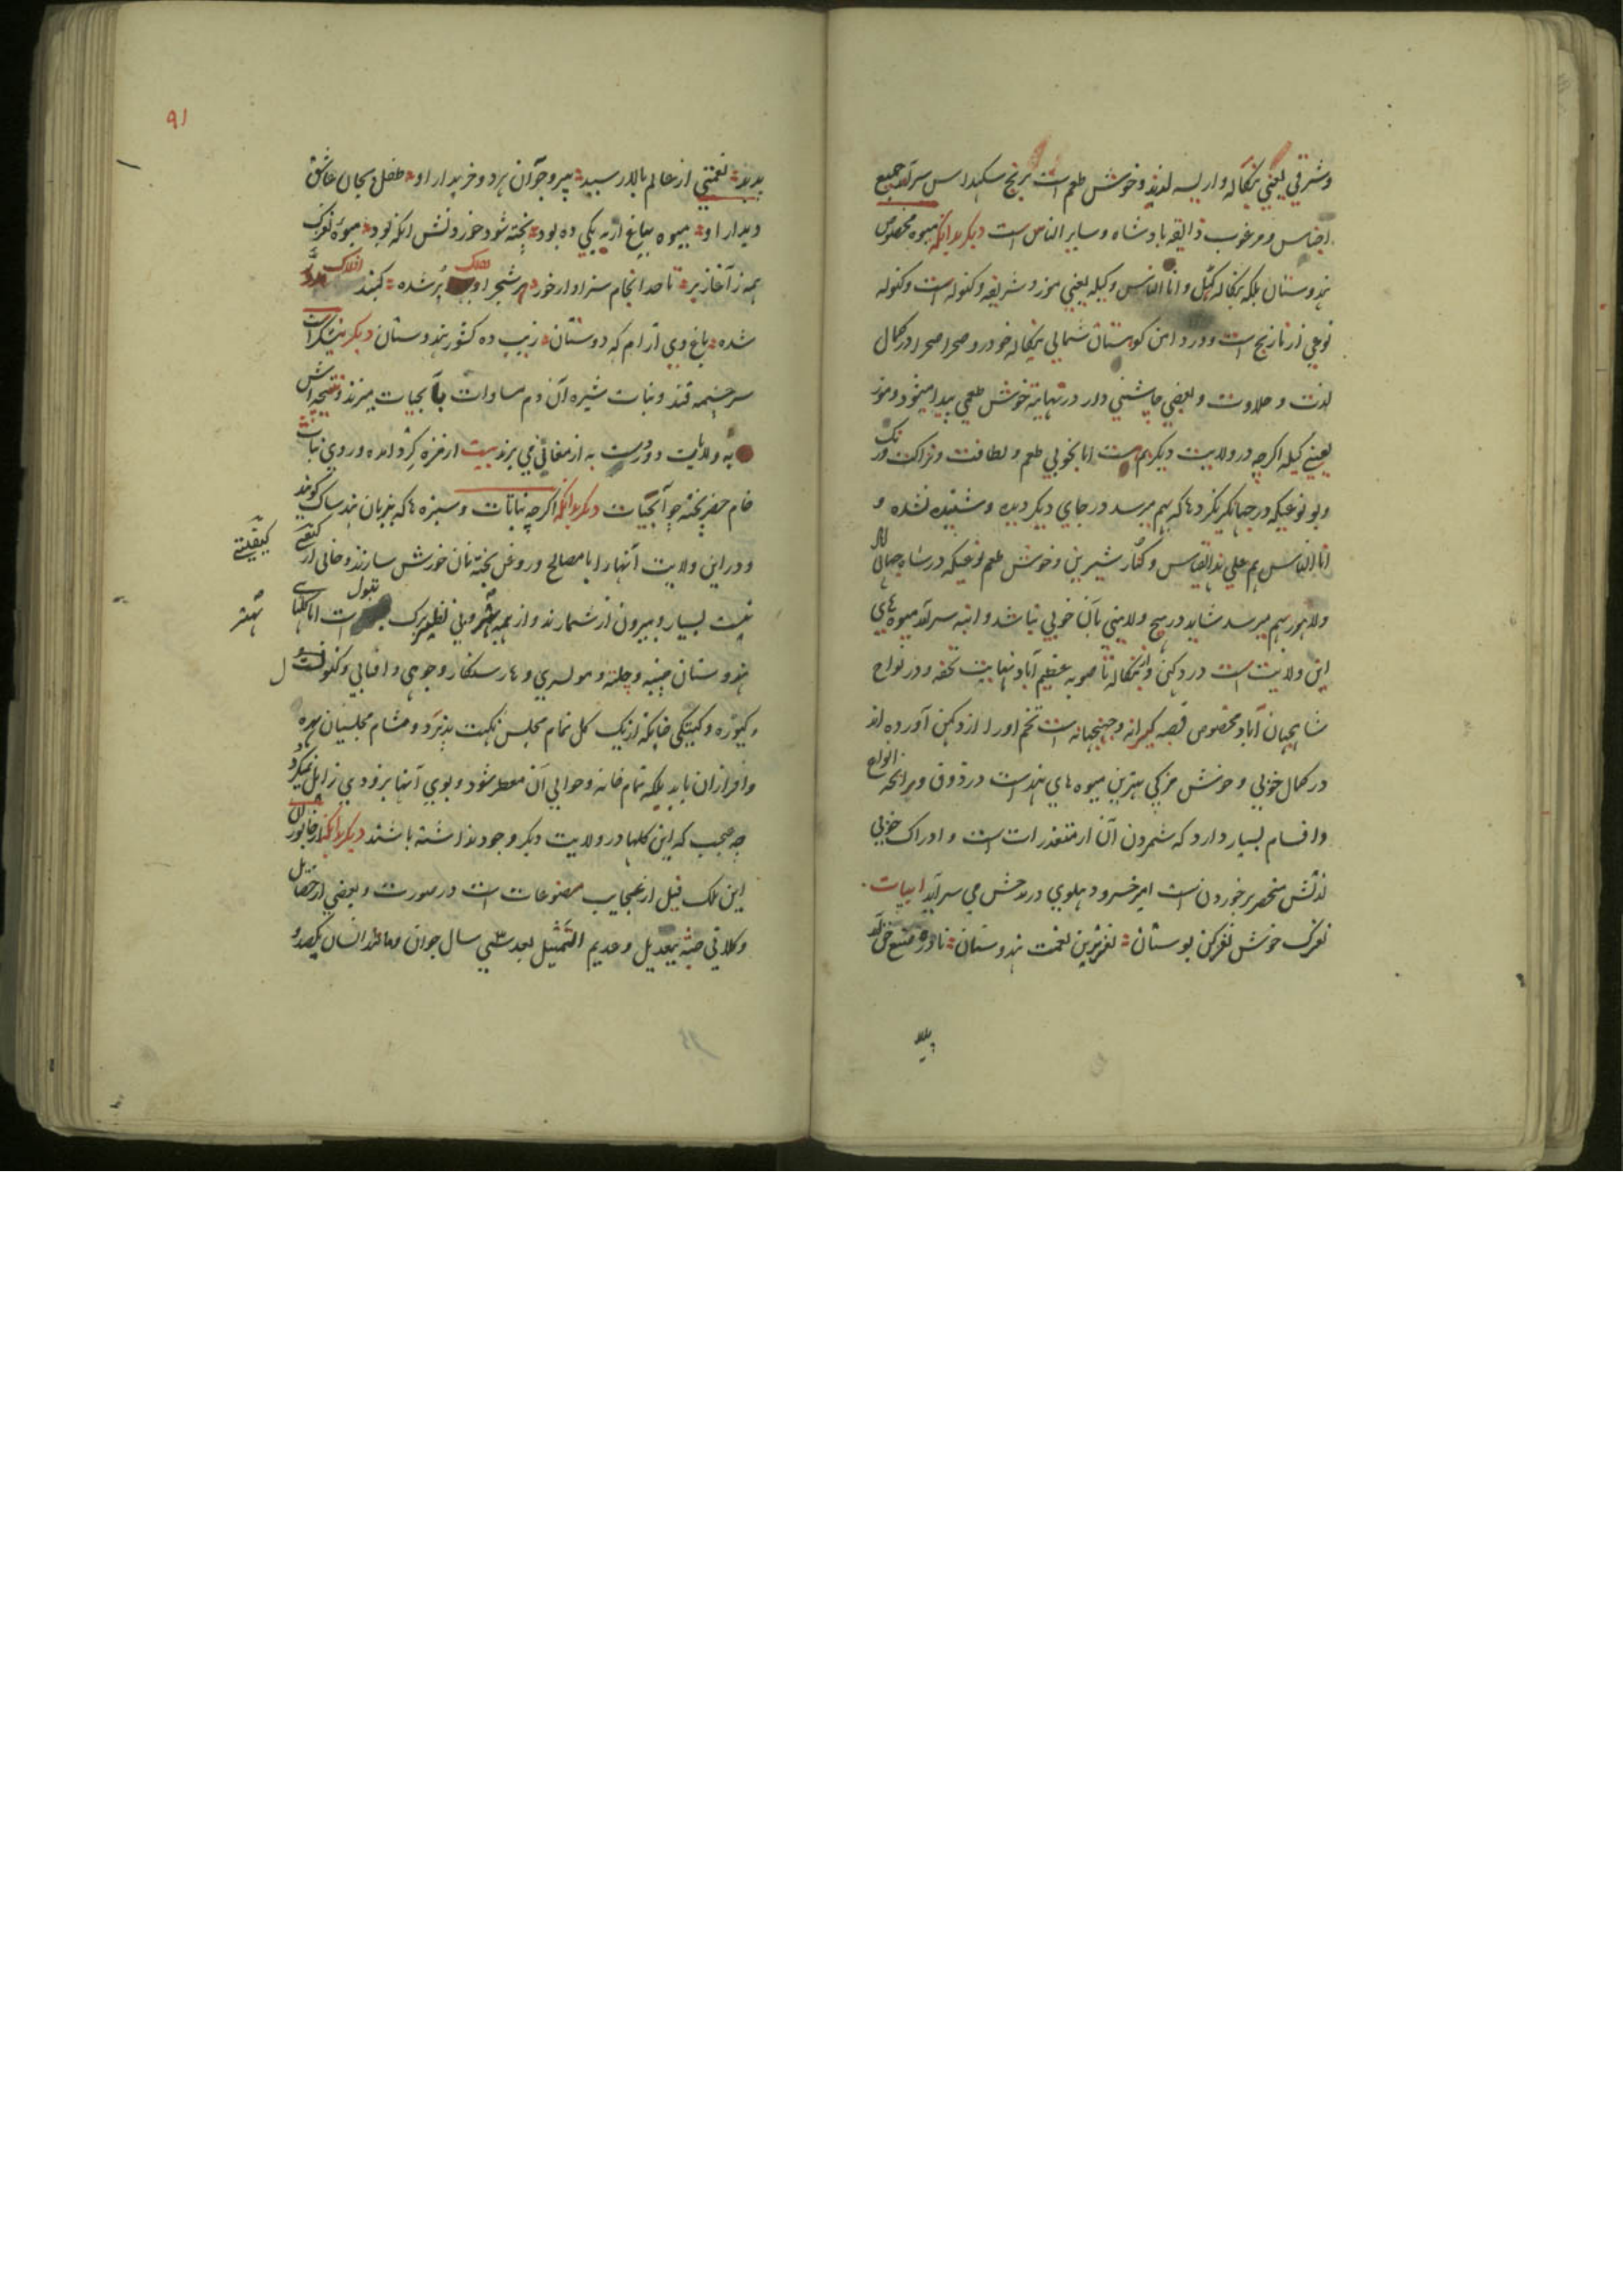 وشرقي يعني بنگاله واريسه لذيذ وخوش طعم است برنج سكهداس سرآمد جميع
اجناس ومرغوب ذايقه بادشاه وساير الناس است ديگر بدانكه ميوه مخصوص
هندوستان بلكه بنگاله كتهل وانناس وكيله يعني موز وشريفه وكنوله است وكنوله
نوعي از نارنج است ودر دامن كوهستان شمالي بنگاله خودرو صحرا صحرا در كمال
لذت وحلاوت وبعضي چاشني دار در نهايت خوش طعمي پيدا ميشود وموز
يعني كيله اگرچه در ولايت ديگر هم هست اما بخوبي طعم ولطافت ونزاكت ورنگ
وبو نوعيكه در جهانگيرنگر دهاكه بهم ميرسد در جاي ديگر ديده وشنيده نشده و
انناس هم علي هذا القياس وكنار شيرين وخوش طعم نوعيكه در شاه جهان
ولاهور بهم ميرسد شايد در هيچ ولايتي بآن خوبي نباشد وانبه سرآمد ميوه هاي
اين ولايت است در دكهن وبنگاله تا صوبه عظيم آباد بغايت تحفه ودر نواح
شاهجهان آباد مخصوص قصبه كيرانه وجهنجهانه است تخم اورا از دكهن آورده اند
در كمال خوبي وخوش مزگي بهترين ميوه هاي هند است در ذوق وبرايحه انواع
واقسام بسيار دارد كه شمردن آن از متعذرات است وادراك خوبي
لذتش منحصر بر خوردن است امير خسرو دهلوي در مدحش مي سرايد ابيات
نغزك خوش نغزكن بوستان نغزترين نعمت هندوستان نادره
بديد نعمتي از عالم بالا رسيد پير وجوان هر دو خريدار او طفل بجان عاشق
ديدار او ميوه بباغ ار نه يكي ده بود پخته شود خوردنش انگه بود ميوه نغزك
همه ز آغاز بر تا حد انجام سزاوار خور هر شجر او پر شده گنبد افلاك
شده باغ وي آرام گه دوستان زيب ده كشور هندوستان ديگر نيشكر است
سرچشمه قند ونبات شيره آن دم مساوات بآبحيات ميزند
به ولايت دوردست به ارمغاني مي برند بيت از مزه گرد آمده در وي نبات
خام خضر پخته چو آبحيات ديگر بدانكه اگرچه نباتات وسبزه ها كه بزبان هند ساك گويند
ودر اين ولايت آنها را با مصالح وروغن پخته نان خورش سازند وخالي از كيفيتي
نيست بسيار وبيرون از شمارند واز همه بهتر وبي نظير برگ تنبول است اما گلهاي
هندوستان چنبه وچلته ومولسري وهارسنگار وجوهي وافتابي وكنول
وكيوره وكيتكي چنانكه از يك گل تمام مجلس نكهت پذيرد ومشام مجلسيان بهره
وافر از آن يابد بلكه تمام خانه وحوالي آن معطر شود وبوي آنها بزودي زايل نميگردد
چه عجب كه اين گلها در ولايت ديگر وجود نداشته باشند ديگر بدانكه از جانوران
اين ملك فيل از عجايب مصنوعات است در صورت وبعضي از خصايل
وكلاني جثه بيعديل وعديم التمثيل بعد سي سال جوان ومانند انسان يكصد و
كيفيتي
بهتر
٩١